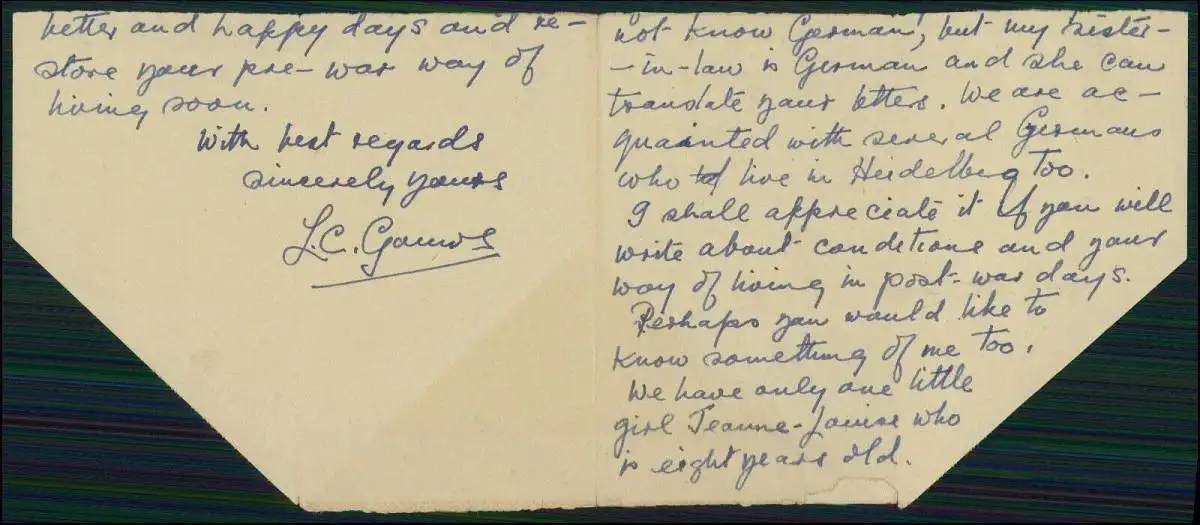 better and happy days and re-
store your pre-war way of
living soon.
With best regards
sincerely yours
L.C.
not know German, but my sister-
-in-law is German and she can
translate your letters. We are ac-
quainted with several Germans
who live in Heidelberg too.
I shall appreciate it if you will
write about conditions and your
way of living in post-war days.
Perhaps you would like to
know something of me too.
We have only one little
girl Jeanne-Louise who
is eight years old.